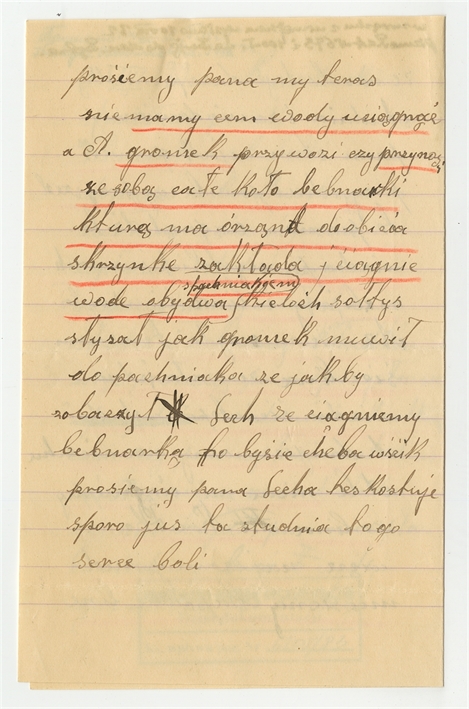 prośiemy pana my teras
nie mamy cem wody uciągnąć
a A. gromek przywozi czy przynosi
ze sobą całe koło bebnarki
kturą ma órząnd do obieia
skrzynke zakłada j ciągnie
pachniakiem
wode obydwa sołtys
słyzał jak gromek muwił
do pachniaka ze jakby
zobaczył Lech ze ciągniemy
bebnarką to byśie chẹba wśćik
prosiemy pana Lecha kosztuje
sporo jus ta studnia to go
serce boli